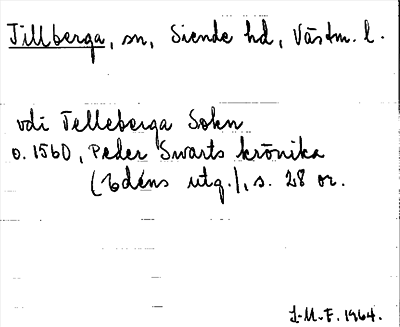 Tillberga, sn, Siende hd, Västm. l.
udi Telleberga Sokn
o. 1560, Peder Swarts krönika
(Edéns utg.), s. 28 or.
J-M-F. 1964.